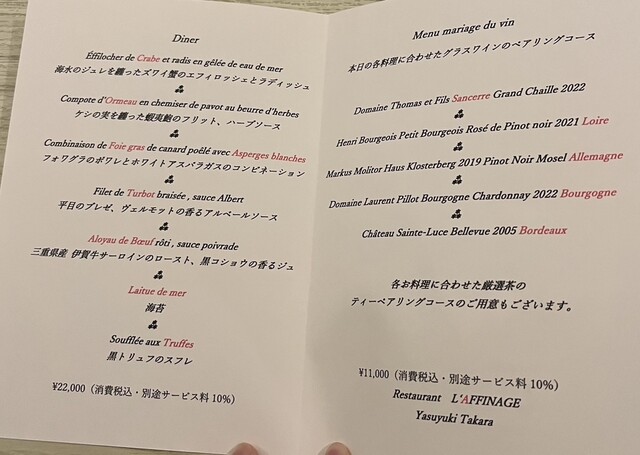 Diner
Éffilocher de Crabe et radis en gêlée de eau de mer
海水のジュレを纏ったズワイ蟹のエフィロッシェとラディッシュ
Compote d'Ormeau en chemiser de pavot au beurre d'herbes
ケシの実を纏った蝦夷鮑のフリット、ハーブソース
Combinaison de Foie gras de canard poêlé avec Asperges blanches
フォワグラのポワレとホワイトアスパラガスのコンビネーション
Filet de Turbot braisée , sauce Albert
平目のブレゼ、ヴェルモットの香るアルベールソース
Aloyau de Bœuf rôti , sauce poivrade
三重県産 伊賀牛サーロインのロースト、黒コショウの香るジュ
Laitue de mer
海苔
Soufflée aux Truffes
黒トリュフのスフレ
¥22,000（消費税込・別途サービス料 10%）
Menu mariage du vin
本日の各料理に合わせたグラスワインのペアリングコース
Domaine Thomas et Fils Sancerre Grand Chaille 2022
Henri Bourgeois Petit Bourgeois Rosé de Pinot noir 2021 Loire
Markus Molitor Haus Klosterberg 2019 Pinot Noir Mosel Allemagne
Domaine Laurent Pillot Bourgogne Chardonnay 2022 Bourgogne
Château Sainte-Luce Bellevue 2005 Bordeaux
各お料理に合わせた厳選茶の
ティーペアリングコースのご用意もございます。
¥11,000（消費税込・別途サービス料 10%）
Restaurant L'AFFINAGE
Yasuyuki Takara